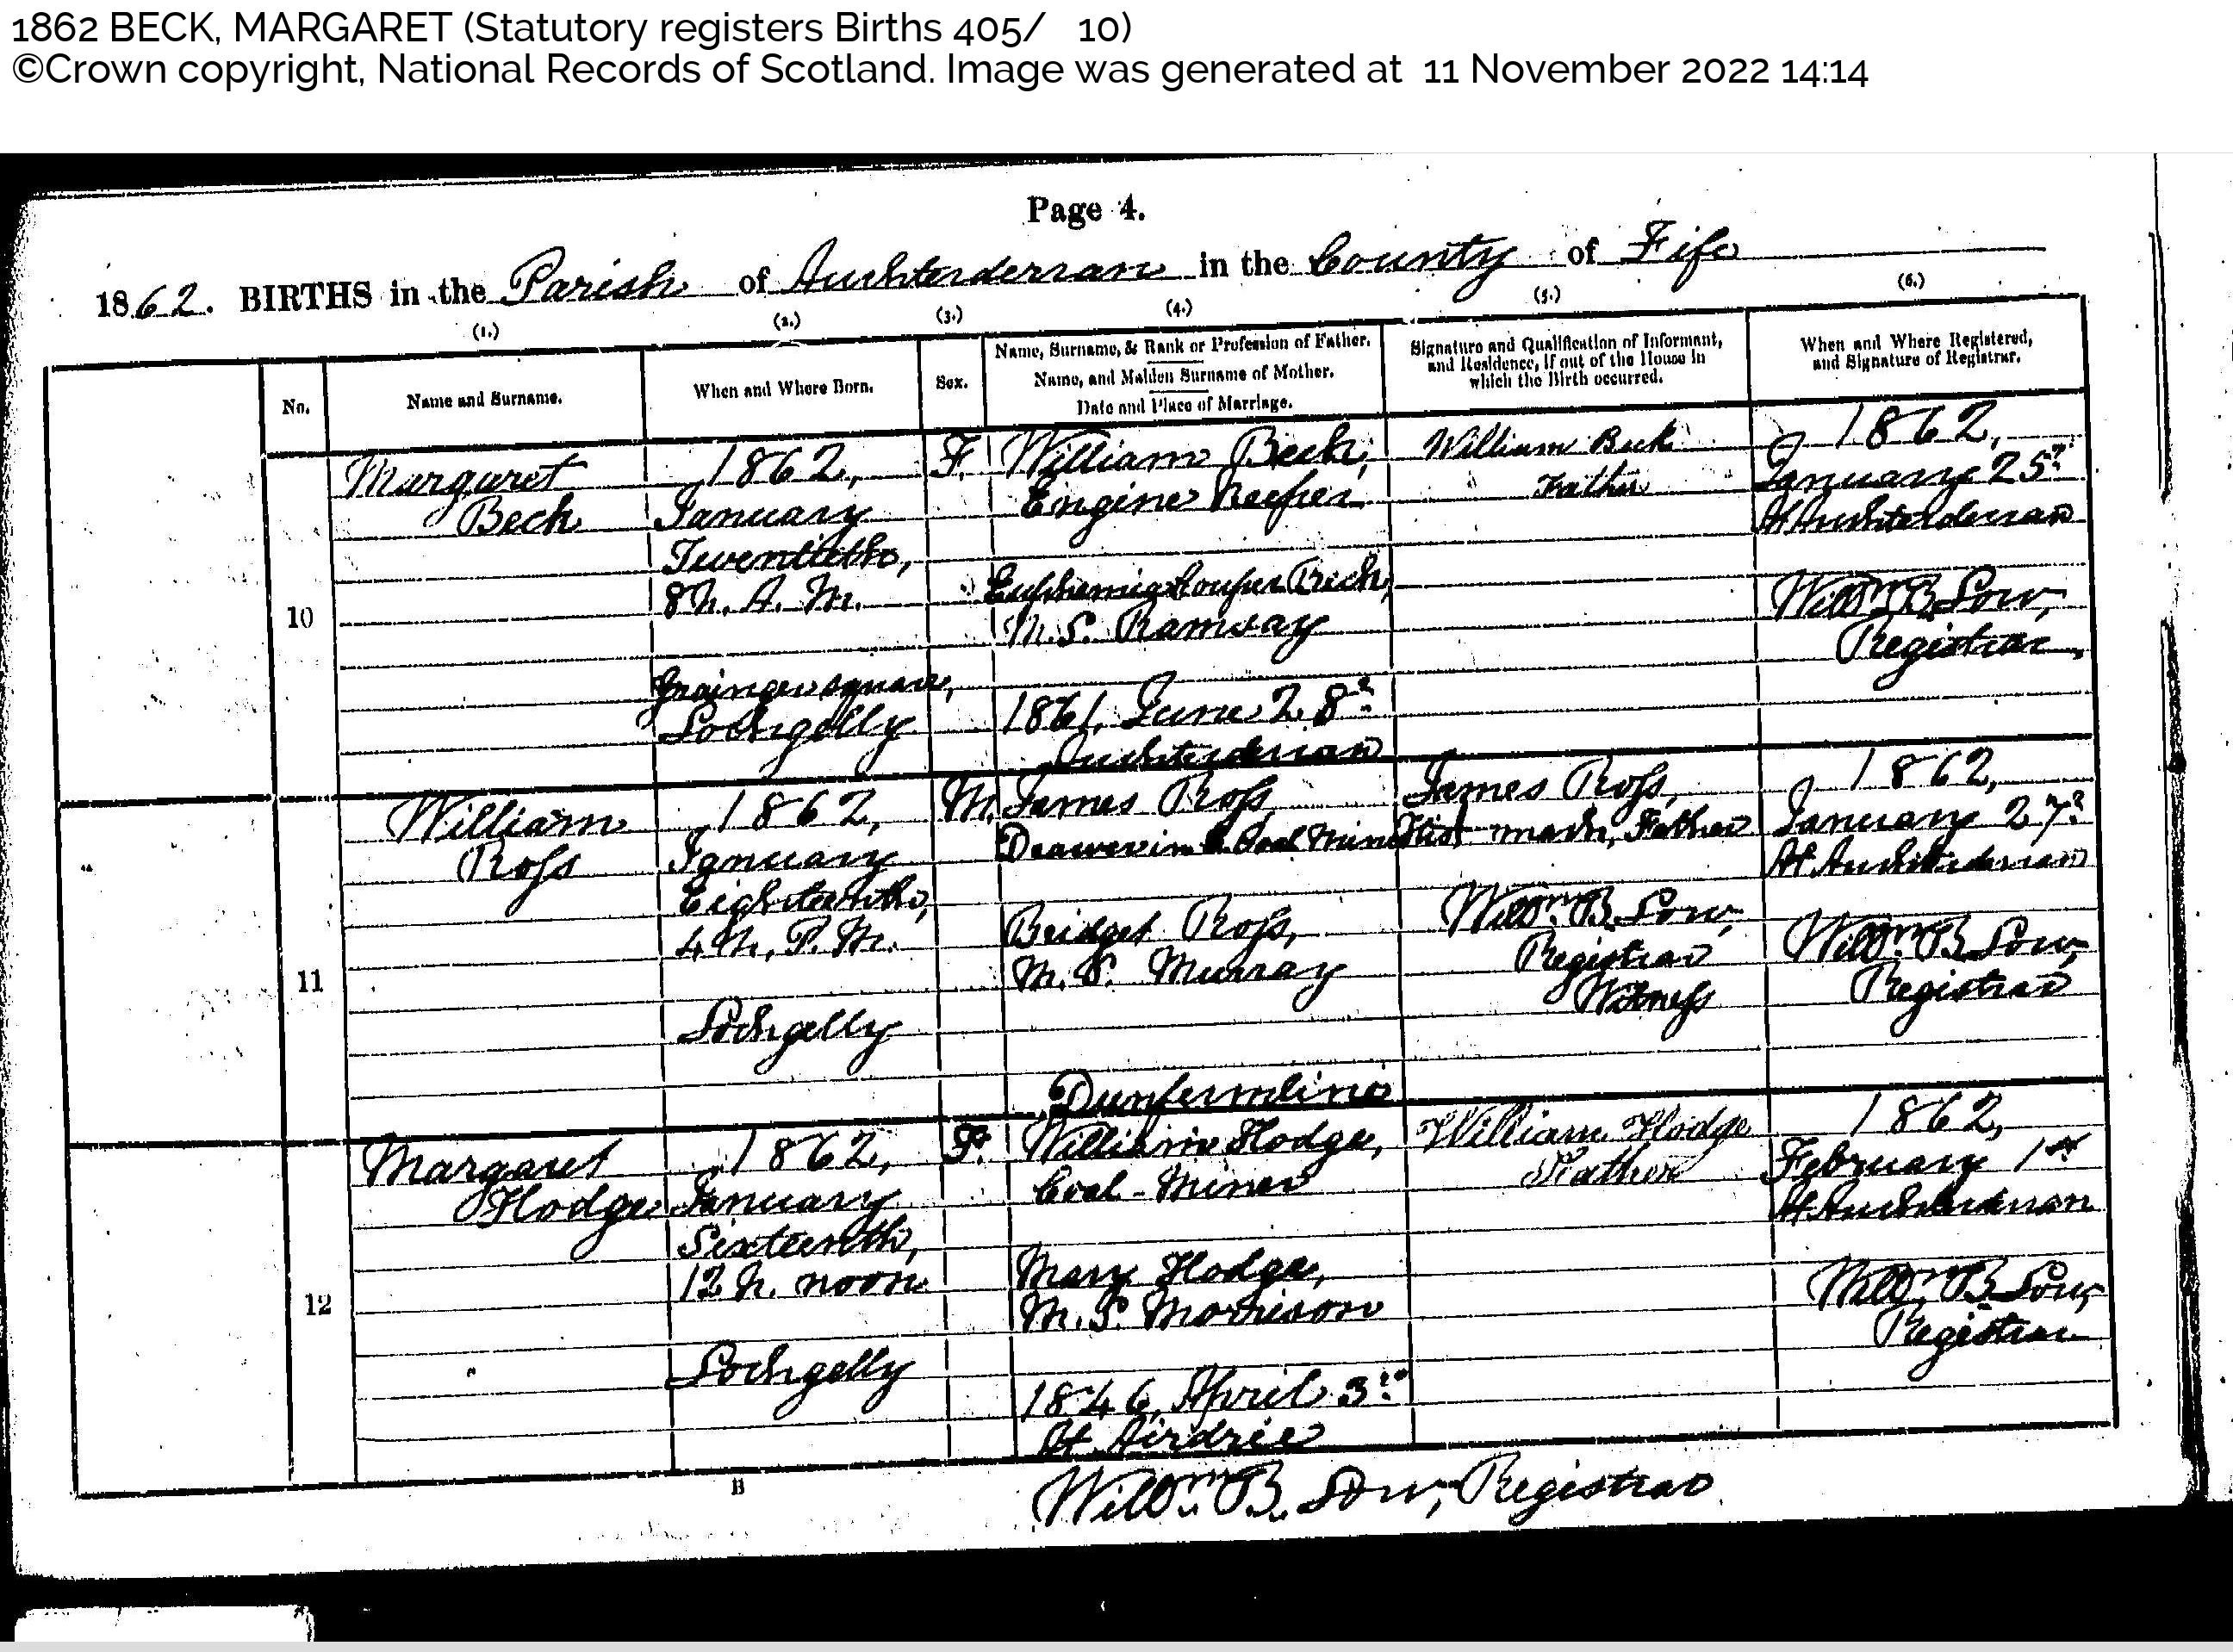 1862 BECK, MARGARET (Statutory registers Births 405/ 10)
©Crown copyright, National Records of Scotland. Image was generated at 11 November 2022 14:14
Page 4.
1862. BIRTHS in the Parish of Auchterderran in the County of Fife
(1.) (2.) (3.) (4.) (5.) (6.)
No.
Name and Surname.
When and Where Born.
Sex.
Name, Surname, & Rank or Profession of Father.
Name, and Maiden Surname of Mother.
Date and Place of Marriage.
Signature and Qualification of Informant,
and Residence, if out of the House in
which the Birth occurred.
When and Where Registered,
and Signature of Registrar.
10
Margaret
Beck
1862,
January
Twentieth,
8h. A. M.
Grainger square,
Lochgelly
F.
William Beck,
Engine Keeper
Euphemia Couper Beck,
M.S. Ramsay
1861, June 28th
Auchterderran
William Beck
Father
1862,
January 25th
At Auchterderran
Willm. B. Low,
Registrar
11
William
Ross
1862,
January
Eighteenth,
4h. P. M.
Lochgelly
M.
James Ross,
Drawer in a Coal Mine
Bridget Ross,
M. S. Murray
Dunfermline
James Ross,
His x mark, Father
Willm. B. Low,
Registrar
Witness
1862,
January 27th
At Auchterderran
Willm. B. Low,
Registrar
12
Margaret
Hodge
1862,
January
Sixteenth,
12 h. noon
Lochgelly
F.
William Hodge,
Coal-Miner
Mary Hodge,
M. S. Morrison
1846, April 3rd
At Airdrie
William Hodge
Father
1862,
February 1st
At Auchterderran
Willm. B. Low,
Registrar
B
Willm. B. Low, Registrar